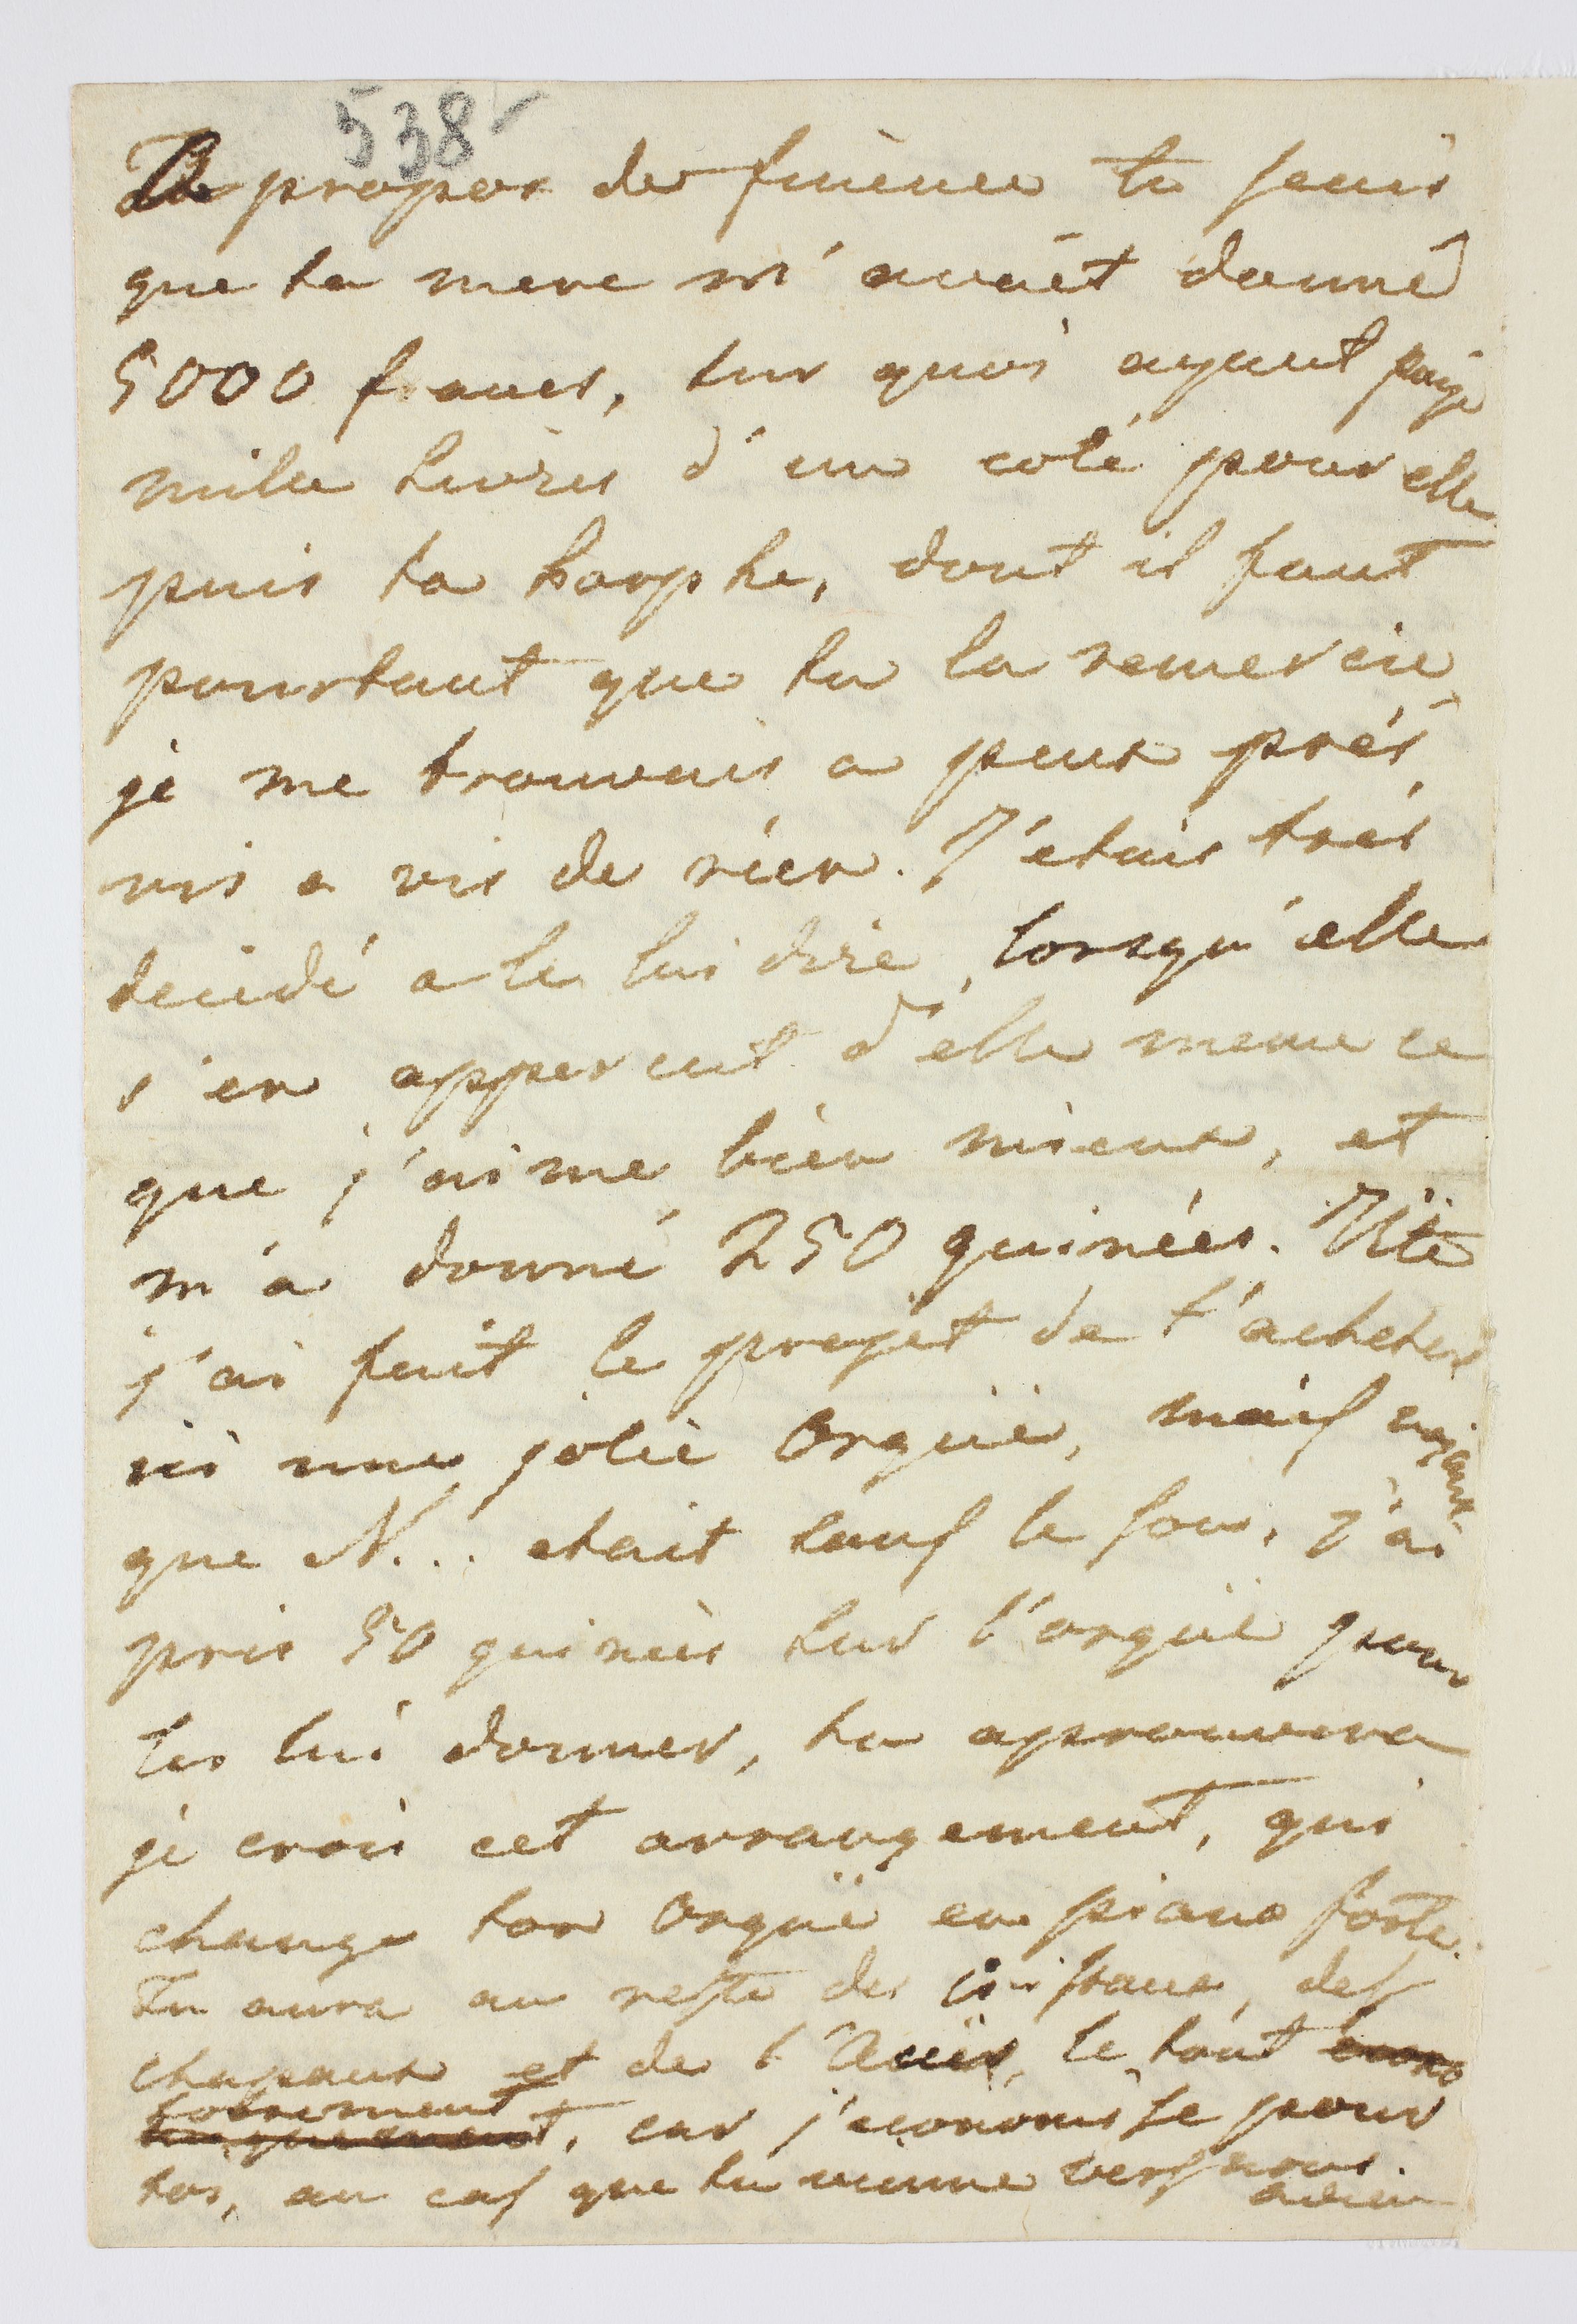 538
A propos de finence tu scais
que ta mere m'avait donné
5000 francs, sur quoi ayant payé
mille livres d'un coté pour elle
puis ta harphe, dont il faut
pourtant que tu la remercie,
je me trouvais a peux prés
vis a vis de rien. J'étais trés
decidé a le lui dire, lorsqu'elle
s'en apperçut d'elle meme ce
que j'aime bien mieux, et
m'a donné 250 guinées. Vite
j'ai fait le projet de t'acheter
ici une jolie Orgüe, mais voyant
que N... etait sauf le sou, j'ai
pris 50 guinées sur l'orgüe pour
les lui donner, tu aprouvera
je crois cet arrangement, qui
change ton Orgüe en piano forte.
Tu aura au reste des ciseaux, des
chapeaux et de l'Acier, le tout
sobrement, car j'economise pour
toi, au cas que tu vienne vers nous.
adieu